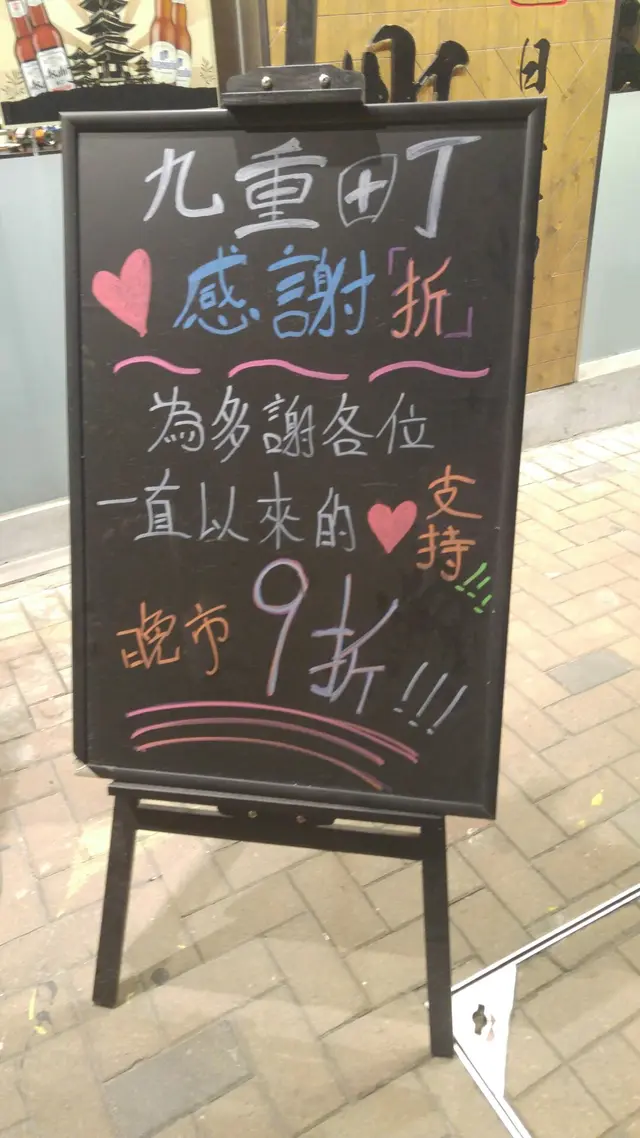 九重田丁
感謝「折」
為多謝各位
一直以來的支持!!!
晚市9折!!!
日